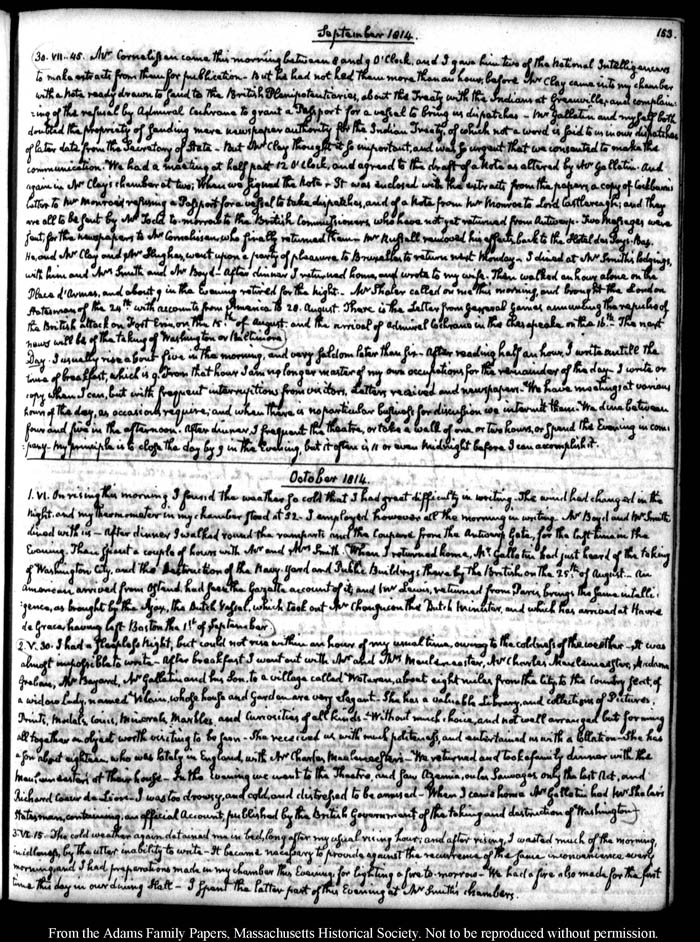 September 1814.
153.
30. VII-45. Mr Cornelissen came this morning between 8 and 9 O'Clock, and I gave him two of the National Intelligencers
to make extracts from them for publication - But he had not had them more than an hour, before Mr Clay came into my chamber
with a Note ready drawn to send to the British Plenipotentiaries, about the Treaty with the Indians at Greenville, and complain-
-ing of the refusal by Admiral Cochrane to grant a Passport for a vessel to bring us dispatches - Mr Gallatin and myself both
doubted the propriety of sending mere newspaper authority for the Indian Treaty, of which not a word is said to us in our dispatches
of later date from the Secretary of State - But Mr Clay thought it so important, and was so urgent that we consented to make the
communication - We had a meeting at half past 12 O'Clock, and agreed to the draft of a Note as altered by Mr Gallatin. And
again in Mr Clay's chamber at two; when we signed the Note - It was enclosed with the extracts from the papers, a copy of Cochrane's
letter to Mr Monroe's refusing a Passport for a vessel to take dispatches, and of a Note from Mr Monroe to Lord Castlereagh; and they
are all to be sent by Mr Todd to-morrow to the British Commissioners, who have not yet returned from Antwerp. Two Messages were
sent, for the newspapers to Mr Cornelissen, who finally returned them - Mr Russell removed his effects, back to the Hotel des Pays-Bas.
He, and Mr Clay and Mr Hughes, went upon a party of pleasure to Bruxelles, to return next Monday - I dined at Mr Smith's lodgings,
with him and Mrs Smith and Mr Boyd - After dinner I returned home, and wrote to my wife. Then walked an hour alone on the
Place d'Armes, and about 9 in the Evening retired for the night - Mr Shaler called on me this morning, and brought the London
Statesman of the 24th with accounts from America to 20. August. There is the Letter from General Gaines announcing the repulse of
the British attack on Fort Erie, on the 15.th of August, and the arrival of Admiral Cochrane in the Chesapeake, on the 16th. The next
news will be of the taking of Washington or Baltimore
Day. I usually rise about five in the morning, and very seldom later than six - After reading half an hour, I write untill the
time of breakfast, which is 9. From that hour I am no longer master of my own occupations, for the remainder of the day - I write or
copy when I can, but with frequent interruptions from visitors, Letters received and newspapers - We have meetings at various
hours of the day, as occasions require; and when there is no particular business for discussion we intermit them - We dine between
four and five in the afternoon. After dinner, I frequent the theatre, or take a walk of one or two hours, or spend the Evening in com-
-pany. My principle is to close the day by 9 in the Evening, but it often is 11 or even Midnight before I can accomplish it.
October 1814.
1. VI. On rising this morning I found the weather so cold that I had great difficulty in writing. The wind had changed in the
Night, and my thermometer in my chamber stood at 52 - I employed however all the morning in writing. Mr Boyd and Mr Smith
dined with us - After dinner I walked round the ramparts and the Coupure from the Antwerp Gate, for the last time in the
Evening. Then spent a couple of hours with Mr and Mrs Smith (When I returned home, Mr Gallatin had just heard of the taking
of Washington City, and the Destruction of the Navy-Yard and Public Buildings there by the British on the 25th of August - An
American arrived from Ostend, had seen the Gazette account of it, and Mr Lewis, returned from Paris, brings the same intelli-
igence, as brought by the Ajax, the Dutch Vessel, which took out Mr Changuion the Dutch Minister, and which has arrived at Havre
de Grace, having left Boston the 1st of September)
2. V. 30. I had a sleepless Night, but could not rise within an hour of my usual time, owing to the coldness of the weather - It was
almost impossible to write - After breakfast I went out with Mr and Mrs Meulemeester, Mr Charles Meulemeester, Madame
Greban, Mr Bayard, Mr Gallatin and his Son, to a village called Wetteren, about eight miles from the city to the Country seat, of
a widow Lady, named Vilain, whose house and Garden are very elegant - She has a valuable Library, and collections of Pictures,
Prints, Medals, Coins, Minerals, Marbles, and Curiosities of all kinds - Without much choice, and not well arranged but forming
all together an object worth visiting to be seen - She received us with much politeness, and entertained us with a collation - She has
a son about eighteen, who was lately in England, with Mr Charles Meulemeester - We returned and took a family dinner with the
Meulemeesters at their house - In the Evening we went to the Theatre, and saw Azemia, ou les Sauvages only the last Act, and
Richard Coeur de Lion - I was too drowsy, and cold, and distressed to be amused - When I came home Mr Gallatin had Mr Shaler's
Statesman, containing, an official Account, published by the British Government of the taking and destruction of Washington)
3. VI. 15. The cold weather again detained me in bed, long after my usual rising hour; and after rising, I wasted much of the morning,
in idleness, by the utter inability to write - It became necessary to provide against the recurrence of the same inconvenience every
morning, and I had preparations made in my chamber this Evening, for lighting a fire to-morrow - We had a fire also made for the first
time this day in our dining Hall - I spent the latter part of this Evening at Mr Smith's chambers.
From the Adams Family Papers, Massachusetts Historical Society. Not to be reproduced without permission.